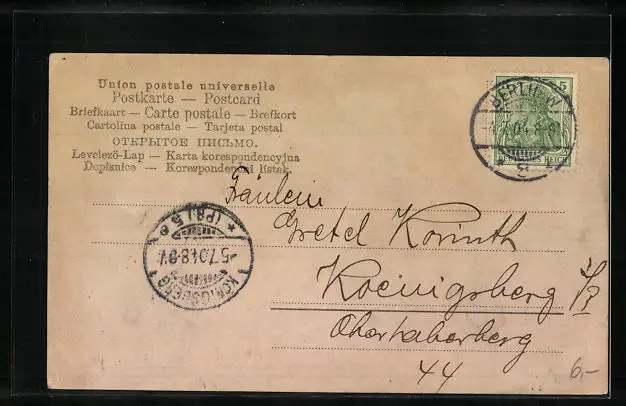 Union postale universelle
Postkarte — Postcard
Briefkaart — Carte postale — Brefkort
Cartolina postale — Tarjeta postal
ОТКРЫТОЕ ПИСЬМО.
Levelező-Lap — Karta korespondencyjna
Dopisnice — Korespondenční lístek.
5
BERLIN W
4.7.04.8-9
8
DEUTSCHES REICH
Fräulein
Gretel Korinth
Koenigsberg i/P
Oberhaberberg
44
KÖNIGSBERG
5.7.04.8-9V
(PR.) 5
6,-